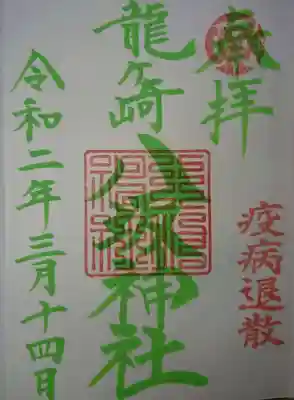 奉拝
疫病退散
龍ヶ崎
八坂神社
令和二年三月十四日